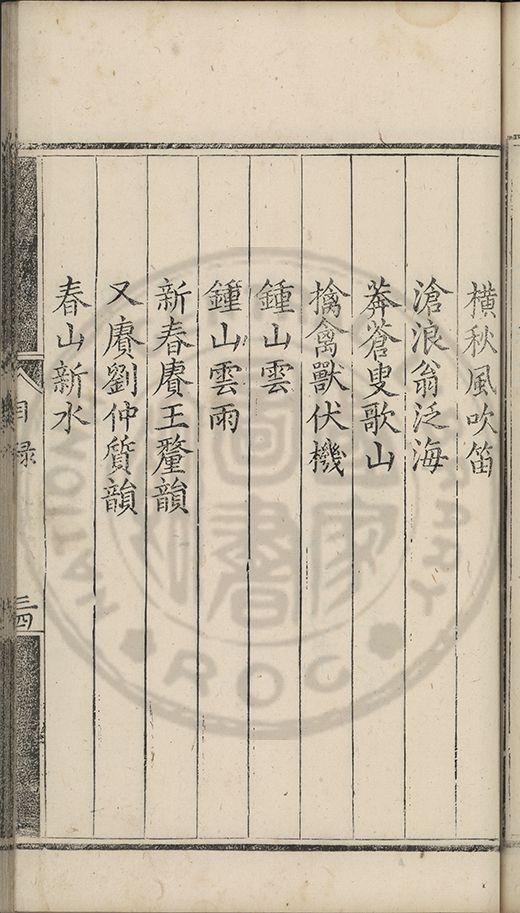 橫秋風吹笛
滄浪翁泛海
莽蒼叟歌山
擒禽獸伏機
鍾山雲
鍾山雲雨
新春賡王釐韻
又賡劉仲質韻
春山新水
目錄
三四
圖書
ROC